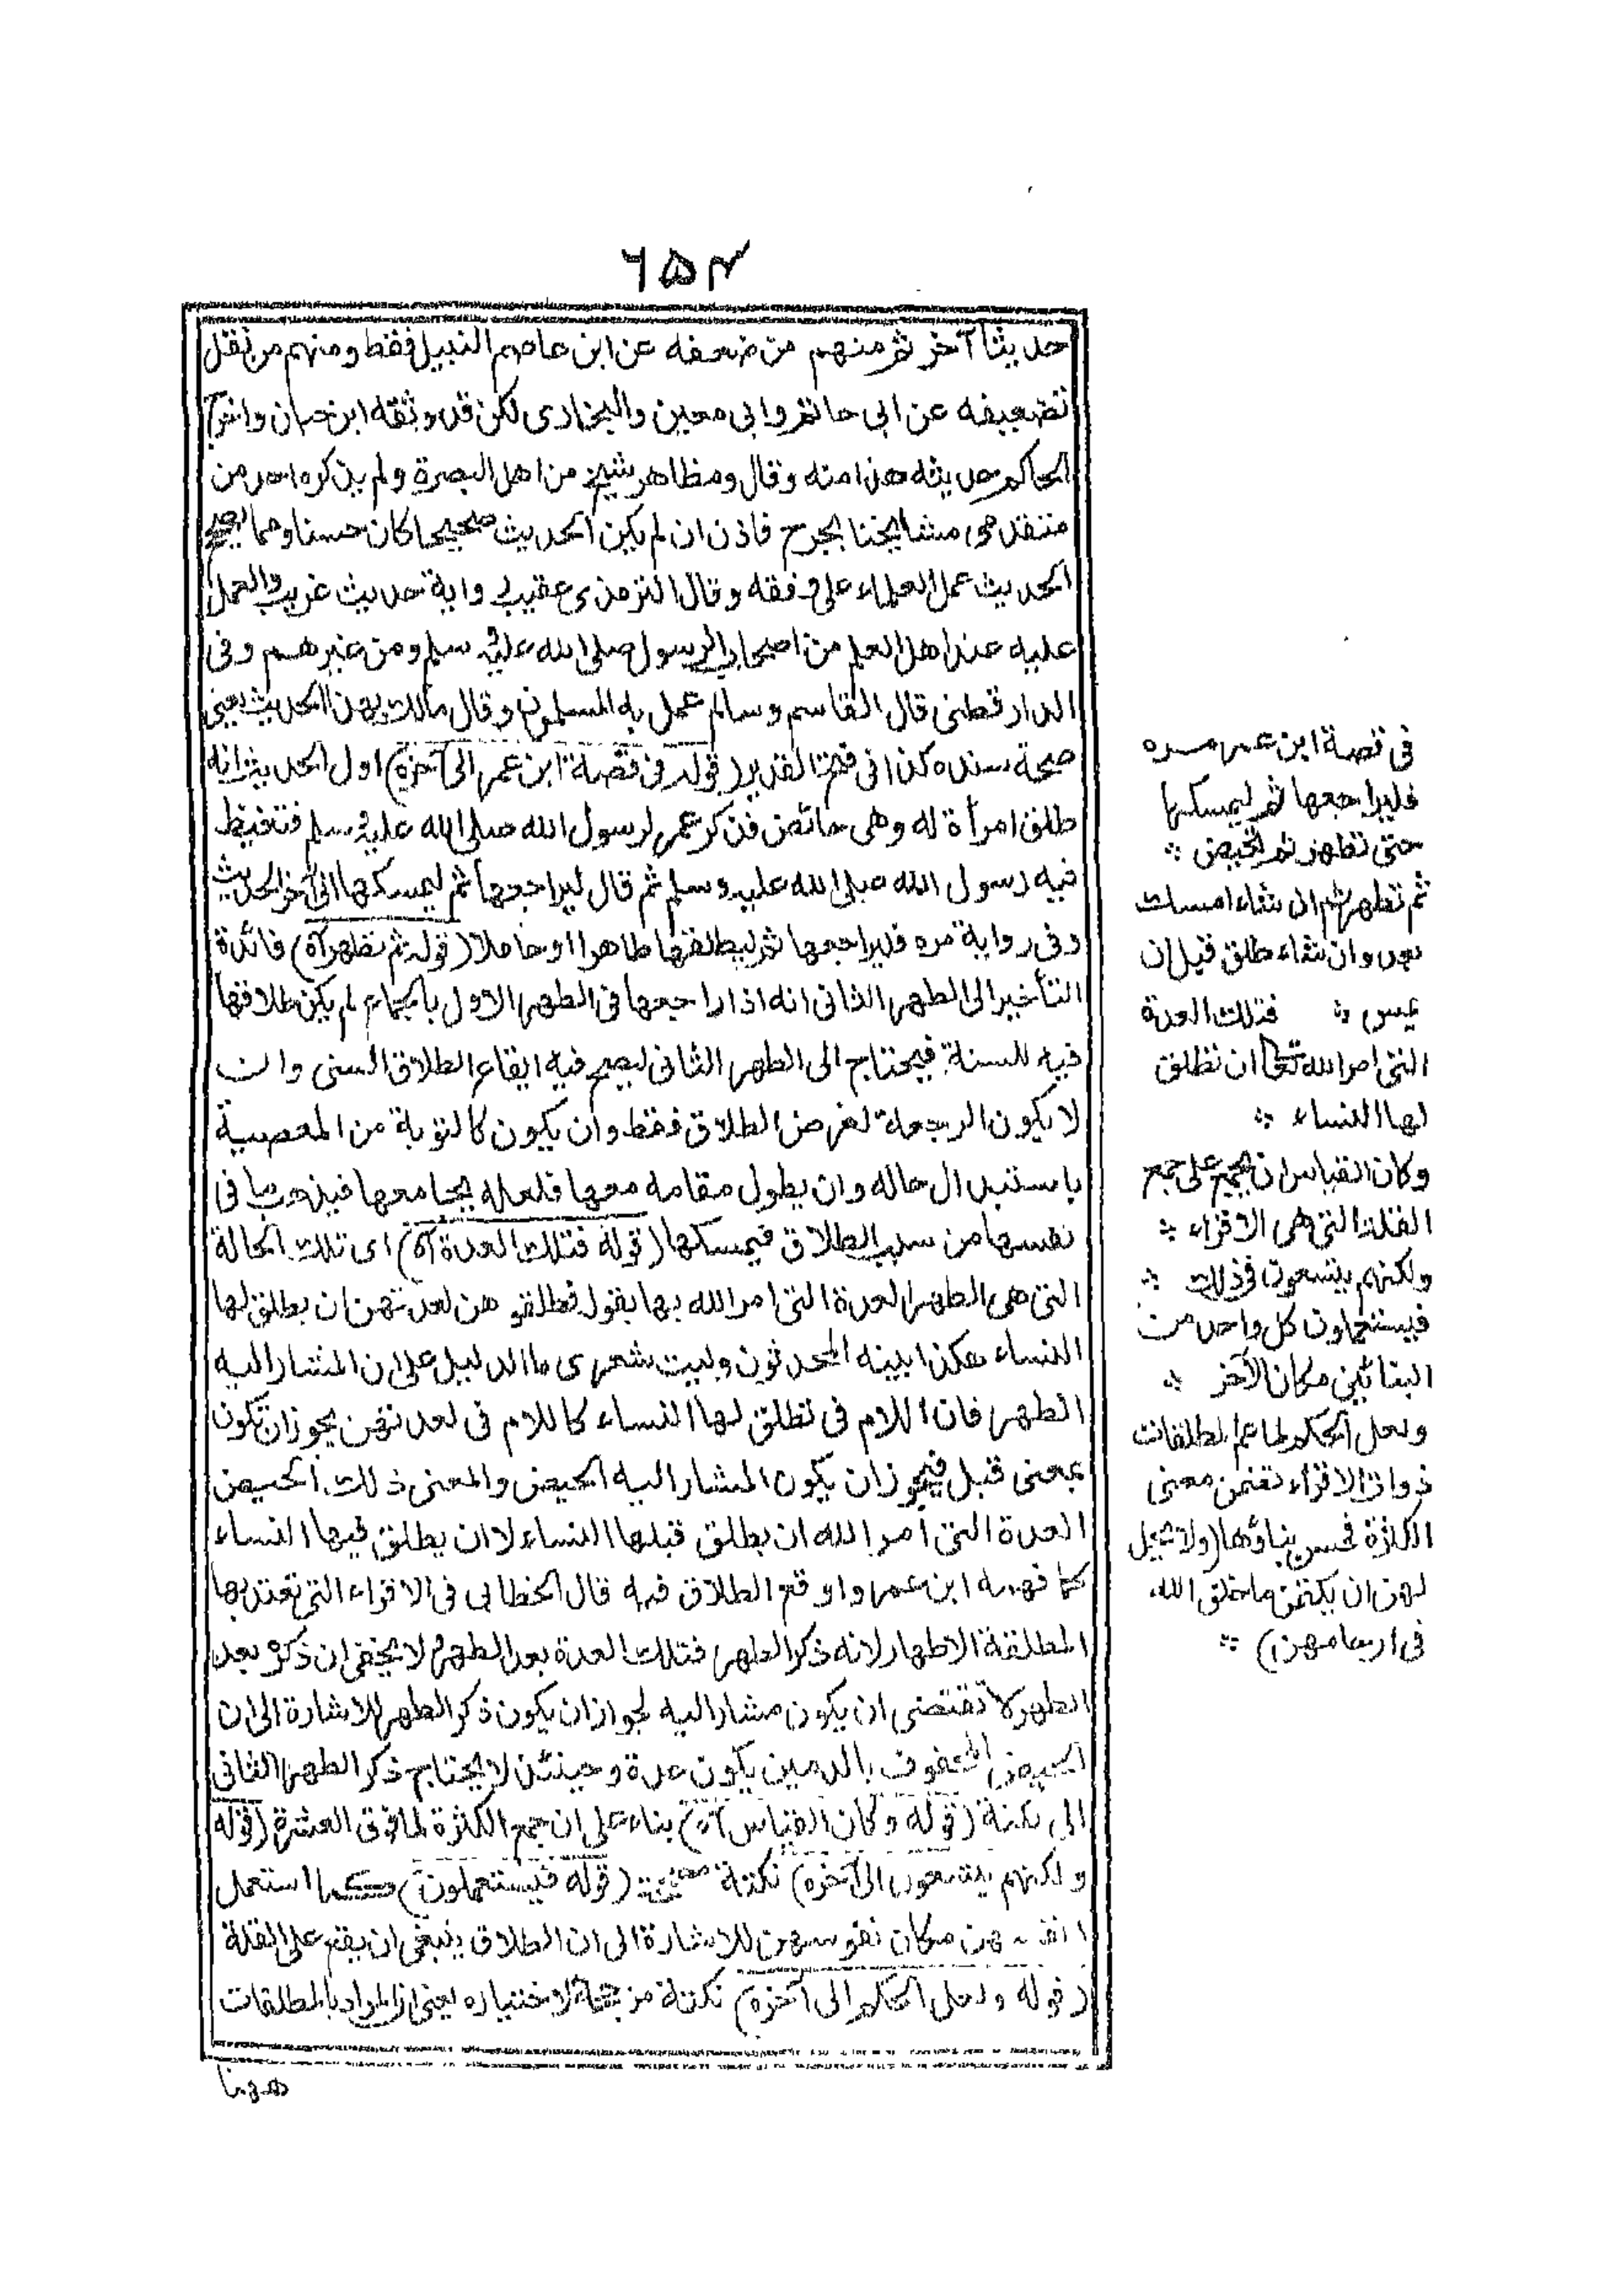 ٦٥٤
حديثا آخر ثم منهم من ضعفه عن ابن عاصم النبيل فقط ومنهم من نقل
تضعيفه عن ابى حاتم وابى معين والبخارى لكن قد وثقه ابن حبان واخرج
الحاكم حديثه هذا منه وقال ومظاهر شيخ من اهل البصرة ولم يذكره احد من
متقدمى مشايخنا بجرح فاذن ان لم يكن الحديث صحيحا كان حسنا ومما يصحح
الحديث عمل العلماء على وفقه وقال الترمذى عقيب رواية حديث غريب والعمل
عليه عند اهل العلم من اصحاب الرسول صلى الله عليه وسلم ومن غيرهم وفى
الدارقطنى قال القاسم وسالم عمل به المسلمون وقال مالك بهذا الحديث يعنى
صحة سنده كذا فى فتح القدير (قوله فى قصة ابن عمر الى آخره) اول الحديث انه
طلق امرأة له وهى حائض فذكر عمر لرسول الله صلى الله عليه وسلم فتغيظ
فيه رسول الله صلى الله عليه وسلم ثم قال ليراجعها ثم ليمسكها الى آخر الحديث
وفى رواية مره فليراجعها ثم ليطلقها طاهرا او حاملا (قوله ثم تطهر آه) فائدة
التأخير الى الطهر الثانى انه اذا راجعها فى الطهر الاول بالجماع لم يكن طلاقها
فيه للسنة فيحتاج الى الطهر الثانى ليصح فيه ايقاع الطلاق السنى وان
لا يكون الرجعة لغرض الطلاق فقط وان يكون كالتوبة من المعصية
باستبدال حاله وان يطول مقامه معها فلعله يجامعها فيذهب ما فى
نفسها من سبب الطلاق فيمسكها (قوله فتلك العدة آه) اى تلك الحالة
التى هى الطهر العدة التى امر الله بها بقول فطلقوهن لعدتهن ان يطلق لها
النساء هكذا بينه المحدثون وليت شعرى ما الدليل على ان المشار اليه
الطهر فان اللام فى تطلق لها النساء كاللام فى لعدتهن يجوز ان تكون
بمعنى قبل فيجوز ان يكون المشار اليه الحيض والمعنى ذلك الحيض
العدة التى امر الله ان يطلق قبلها النساء لا ان يطلق فيها النساء
كما فهمه ابن عمر واوقع الطلاق فيه قال الخطابى فى الاقراء التى تعتد بها
المطلقة الاطهار لانه ذكر الطهر فتلك العدة بعد الطهر ولا يخفى ان ذكره بعد
الطهر لا تقتضى ان يكون مشارا اليه لجواز ان يكون ذكر الطهر للاشارة الى ان
الحيض المحفوف بالدمين يكون عدة وحينئذ لا يحتاج ذكر الطهر الثانى
الى نكتة (قوله وكان القياس آه) بناء على ان جمع الكثرة لما فوق العشرة (قوله
ولكنهم يتسعون الى آخره) نكتة (قوله فيستعملون) كما استعمل
انفسهن مكان نفوسهن للاشارة الى ان الطلاق ينبغى ان يقع على القلة
(قوله ولعل الحكم الى آخره) نكتة من اختياره يعنى ان المراد بالمطلقات
ههنا
فى قصة ابن عمر مره
فليراجعها ثم ليمسكها
حتى تطهر ثم تحيض ؞
ثم تطهر ثم ان شاء امسك
بعد وان شاء طلق قبل ان
يمس ؞ فتلك العدة
التى امر الله تعالى ان تطلق
لها النساء ؞
وكان القياس ان يجيء على جمع
القلة التى هى الاقراء ؞
ولكنهم يتسعون فى ذلك ؞
فيستعملون كل واحد من
البنائين مكان الآخر ؞
ولعل الحكم لما عم المطلقات
ذوات الاقراء تضمن معنى
الكثرة فحسن بناؤها (ولا يحل
لهن ان يكتمن ما خلق الله
فى ارحامهن) ؞